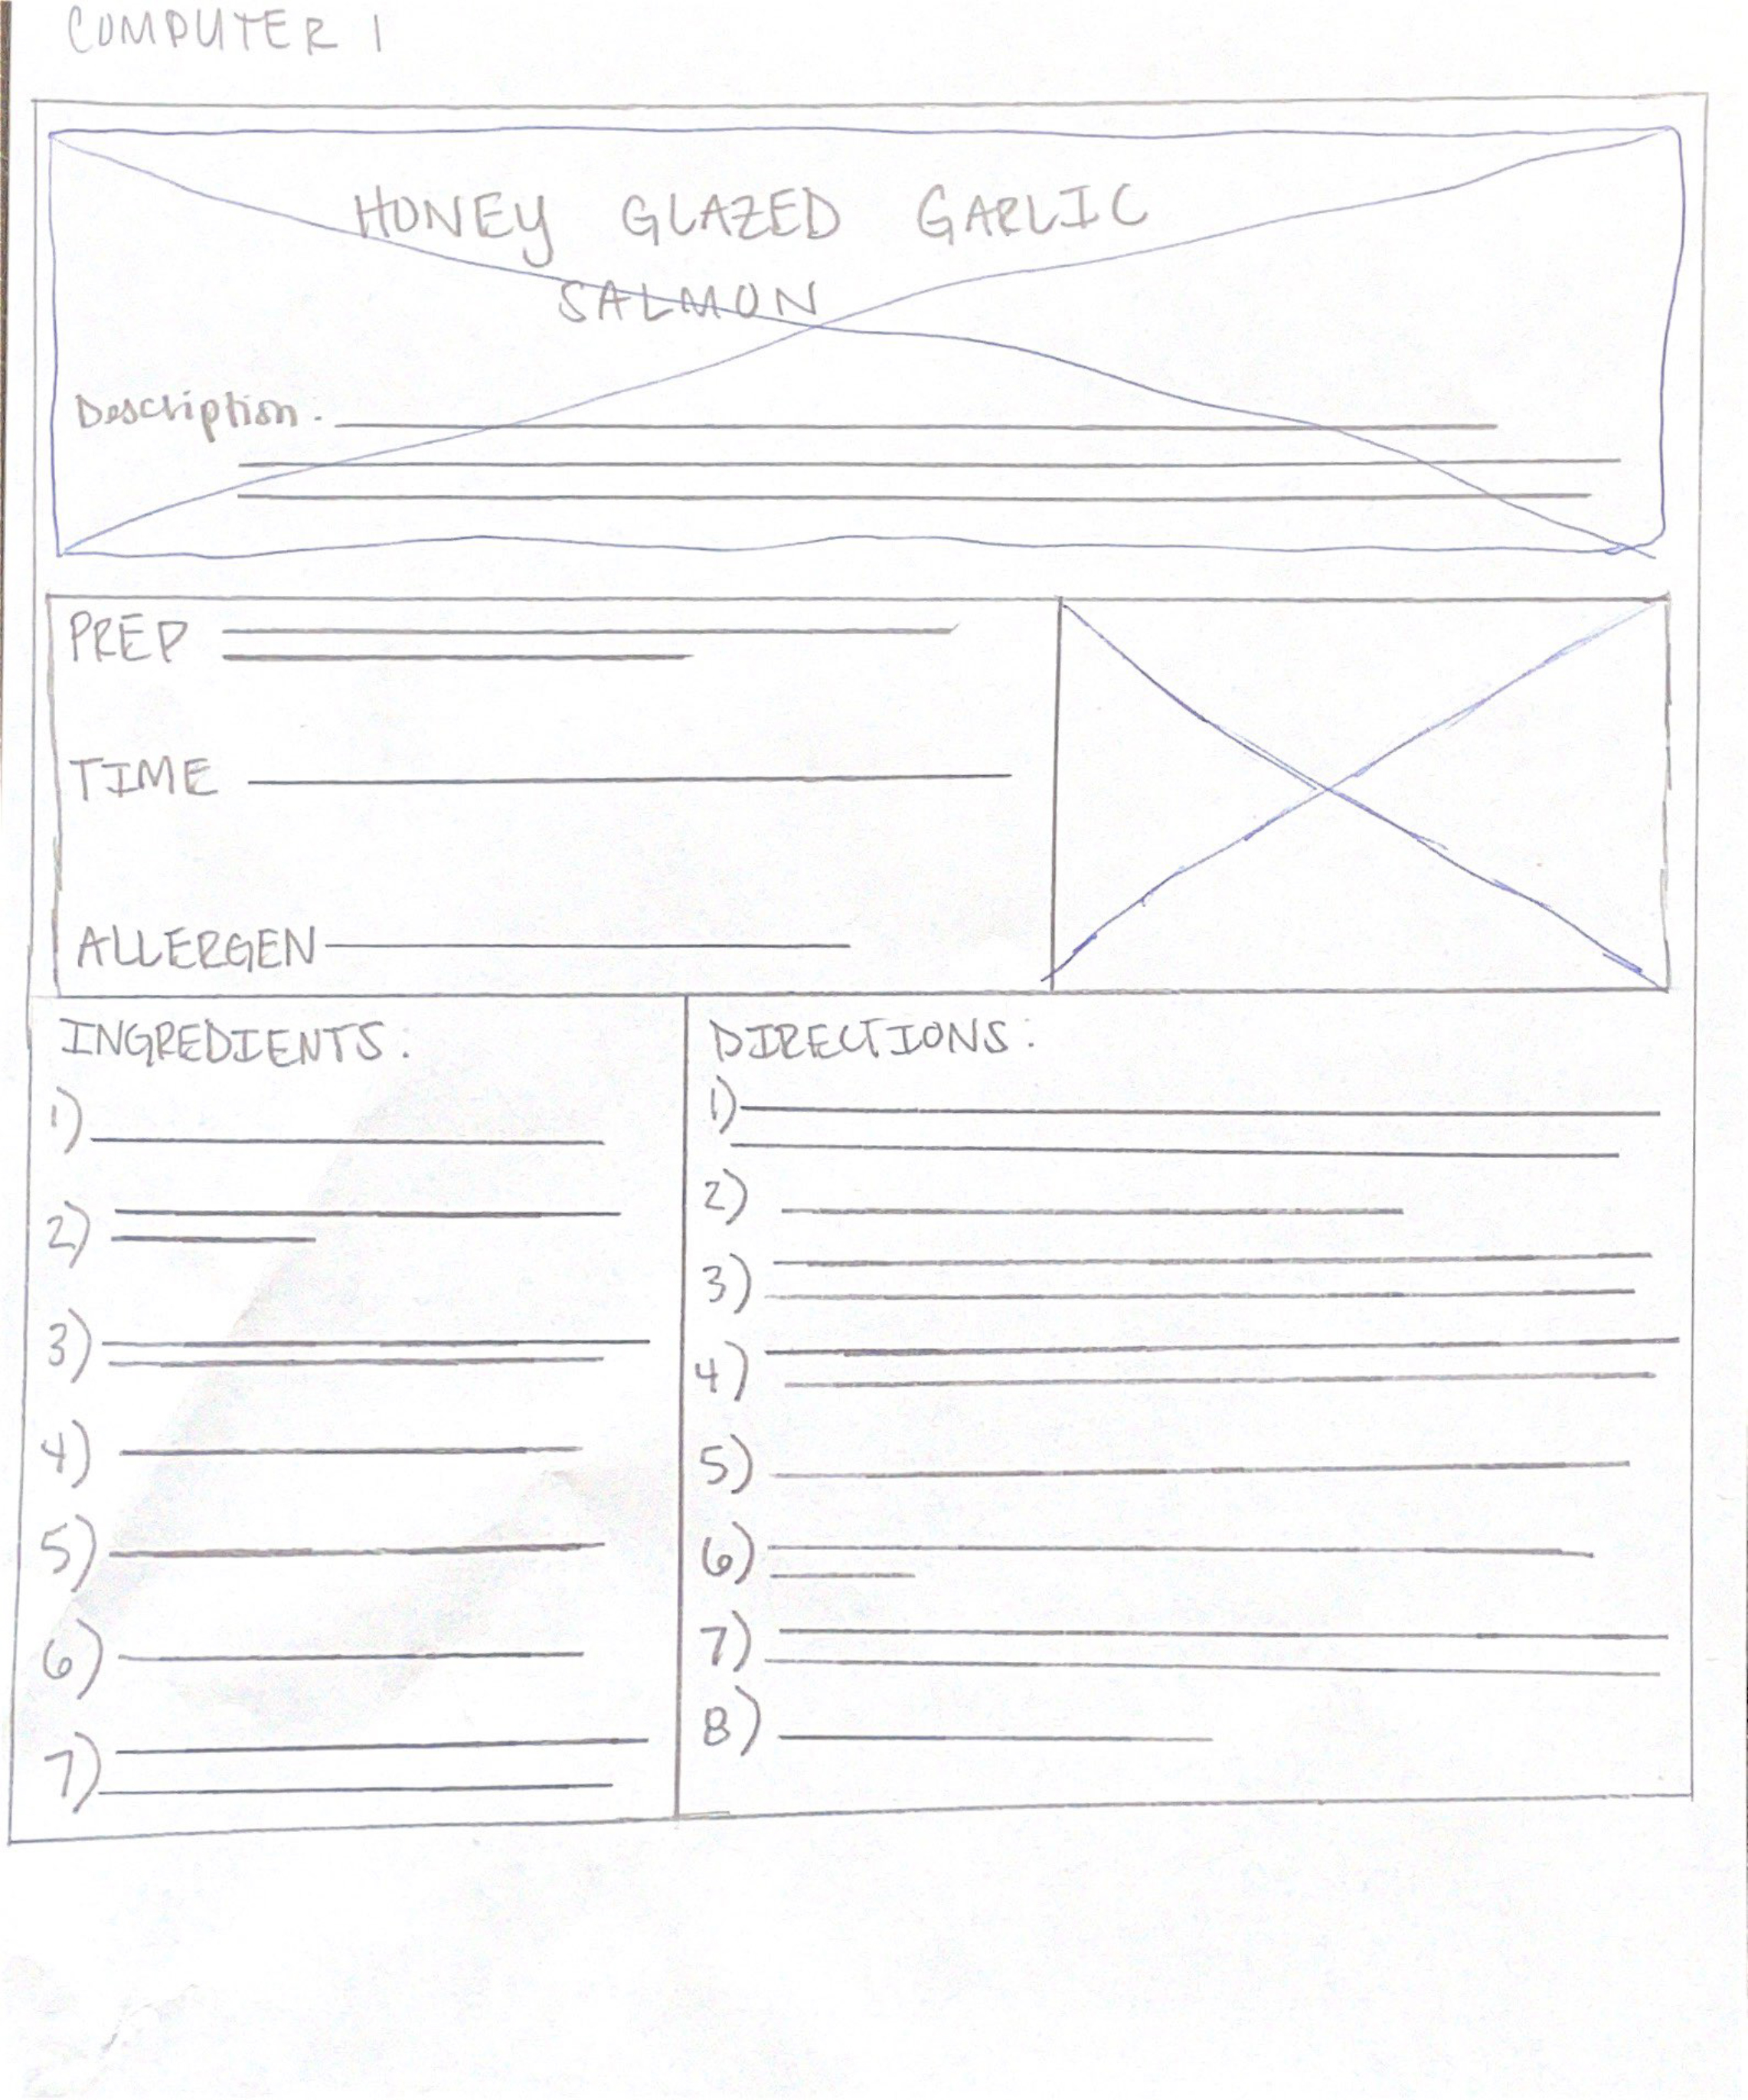 COMPUTER 1
HONEY GLAZED GARLIC
SALMON
Description.
PREP
TIME
ALLERGEN
INGREDIENTS:
1)
2)
3)
4)
5)
6)
7)
DIRECTIONS:
1)
2)
3)
4)
5)
6)
7)
8)